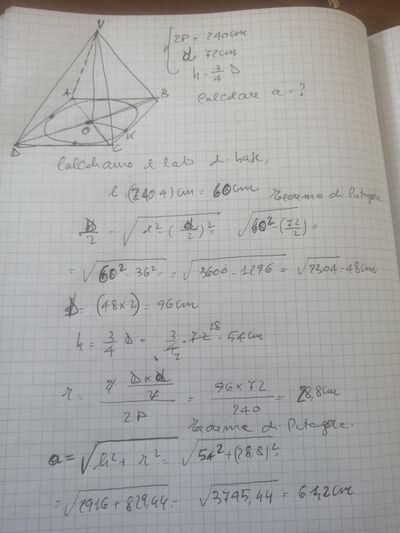 V
2P = 240cm
d 72cm
h = 3/4 D
Calcolare a = ?
A
B
O
K
D
C
Calcoliamo il lato di base,
l = (240:4)cm = 60cm
Teorema di Pitagora
D/2 = √(l² - (d/2)²) = √(60² - (72/2)²) =
= √(60² - 36²) = √(3600 - 1296) = √2304 = 48cm
D = (48×2) = 96cm
h = 3/4 D = 3/4 · 72 18 = 54cm
r = D×d / 2P = 96×72 / 240 = 28,8cm
Teorema di Pitagora.
a = √(h² + r²) = √(54² + (28,8)²) =
= √(2916 + 829,44) = √3745,44 = 61,2cm